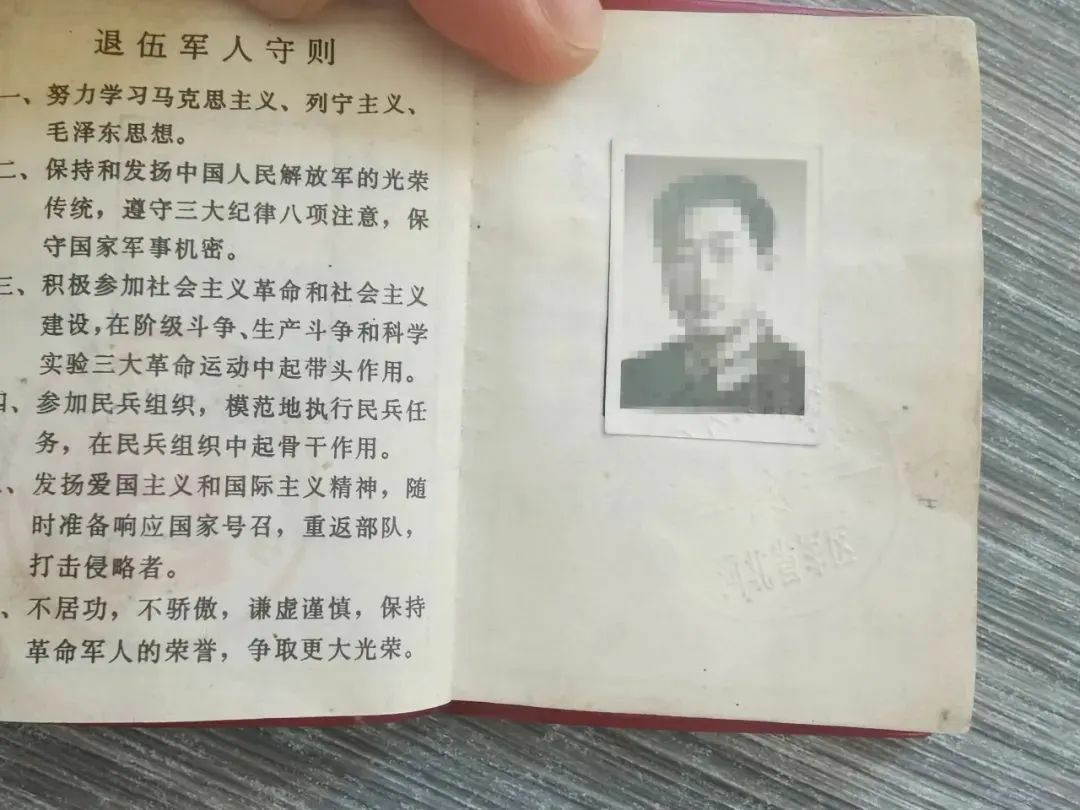 退伍军人守则
一、努力学习马克思主义、列宁主义、
毛泽东思想。
二、保持和发扬中国人民解放军的光荣
传统，遵守三大纪律八项注意，保
守国家军事机密。
三、积极参加社会主义革命和社会主义
建设，在阶级斗争、生产斗争和科学
实验三大革命运动中起带头作用。
四、参加民兵组织，模范地执行民兵任
务，在民兵组织中起骨干作用。
、发扬爱国主义和国际主义精神，随
时准备响应国家号召，重返部队，
打击侵略者。
、不居功，不骄傲，谦虚谨慎，保持
革命军人的荣誉，争取更大光荣。
河北省军区